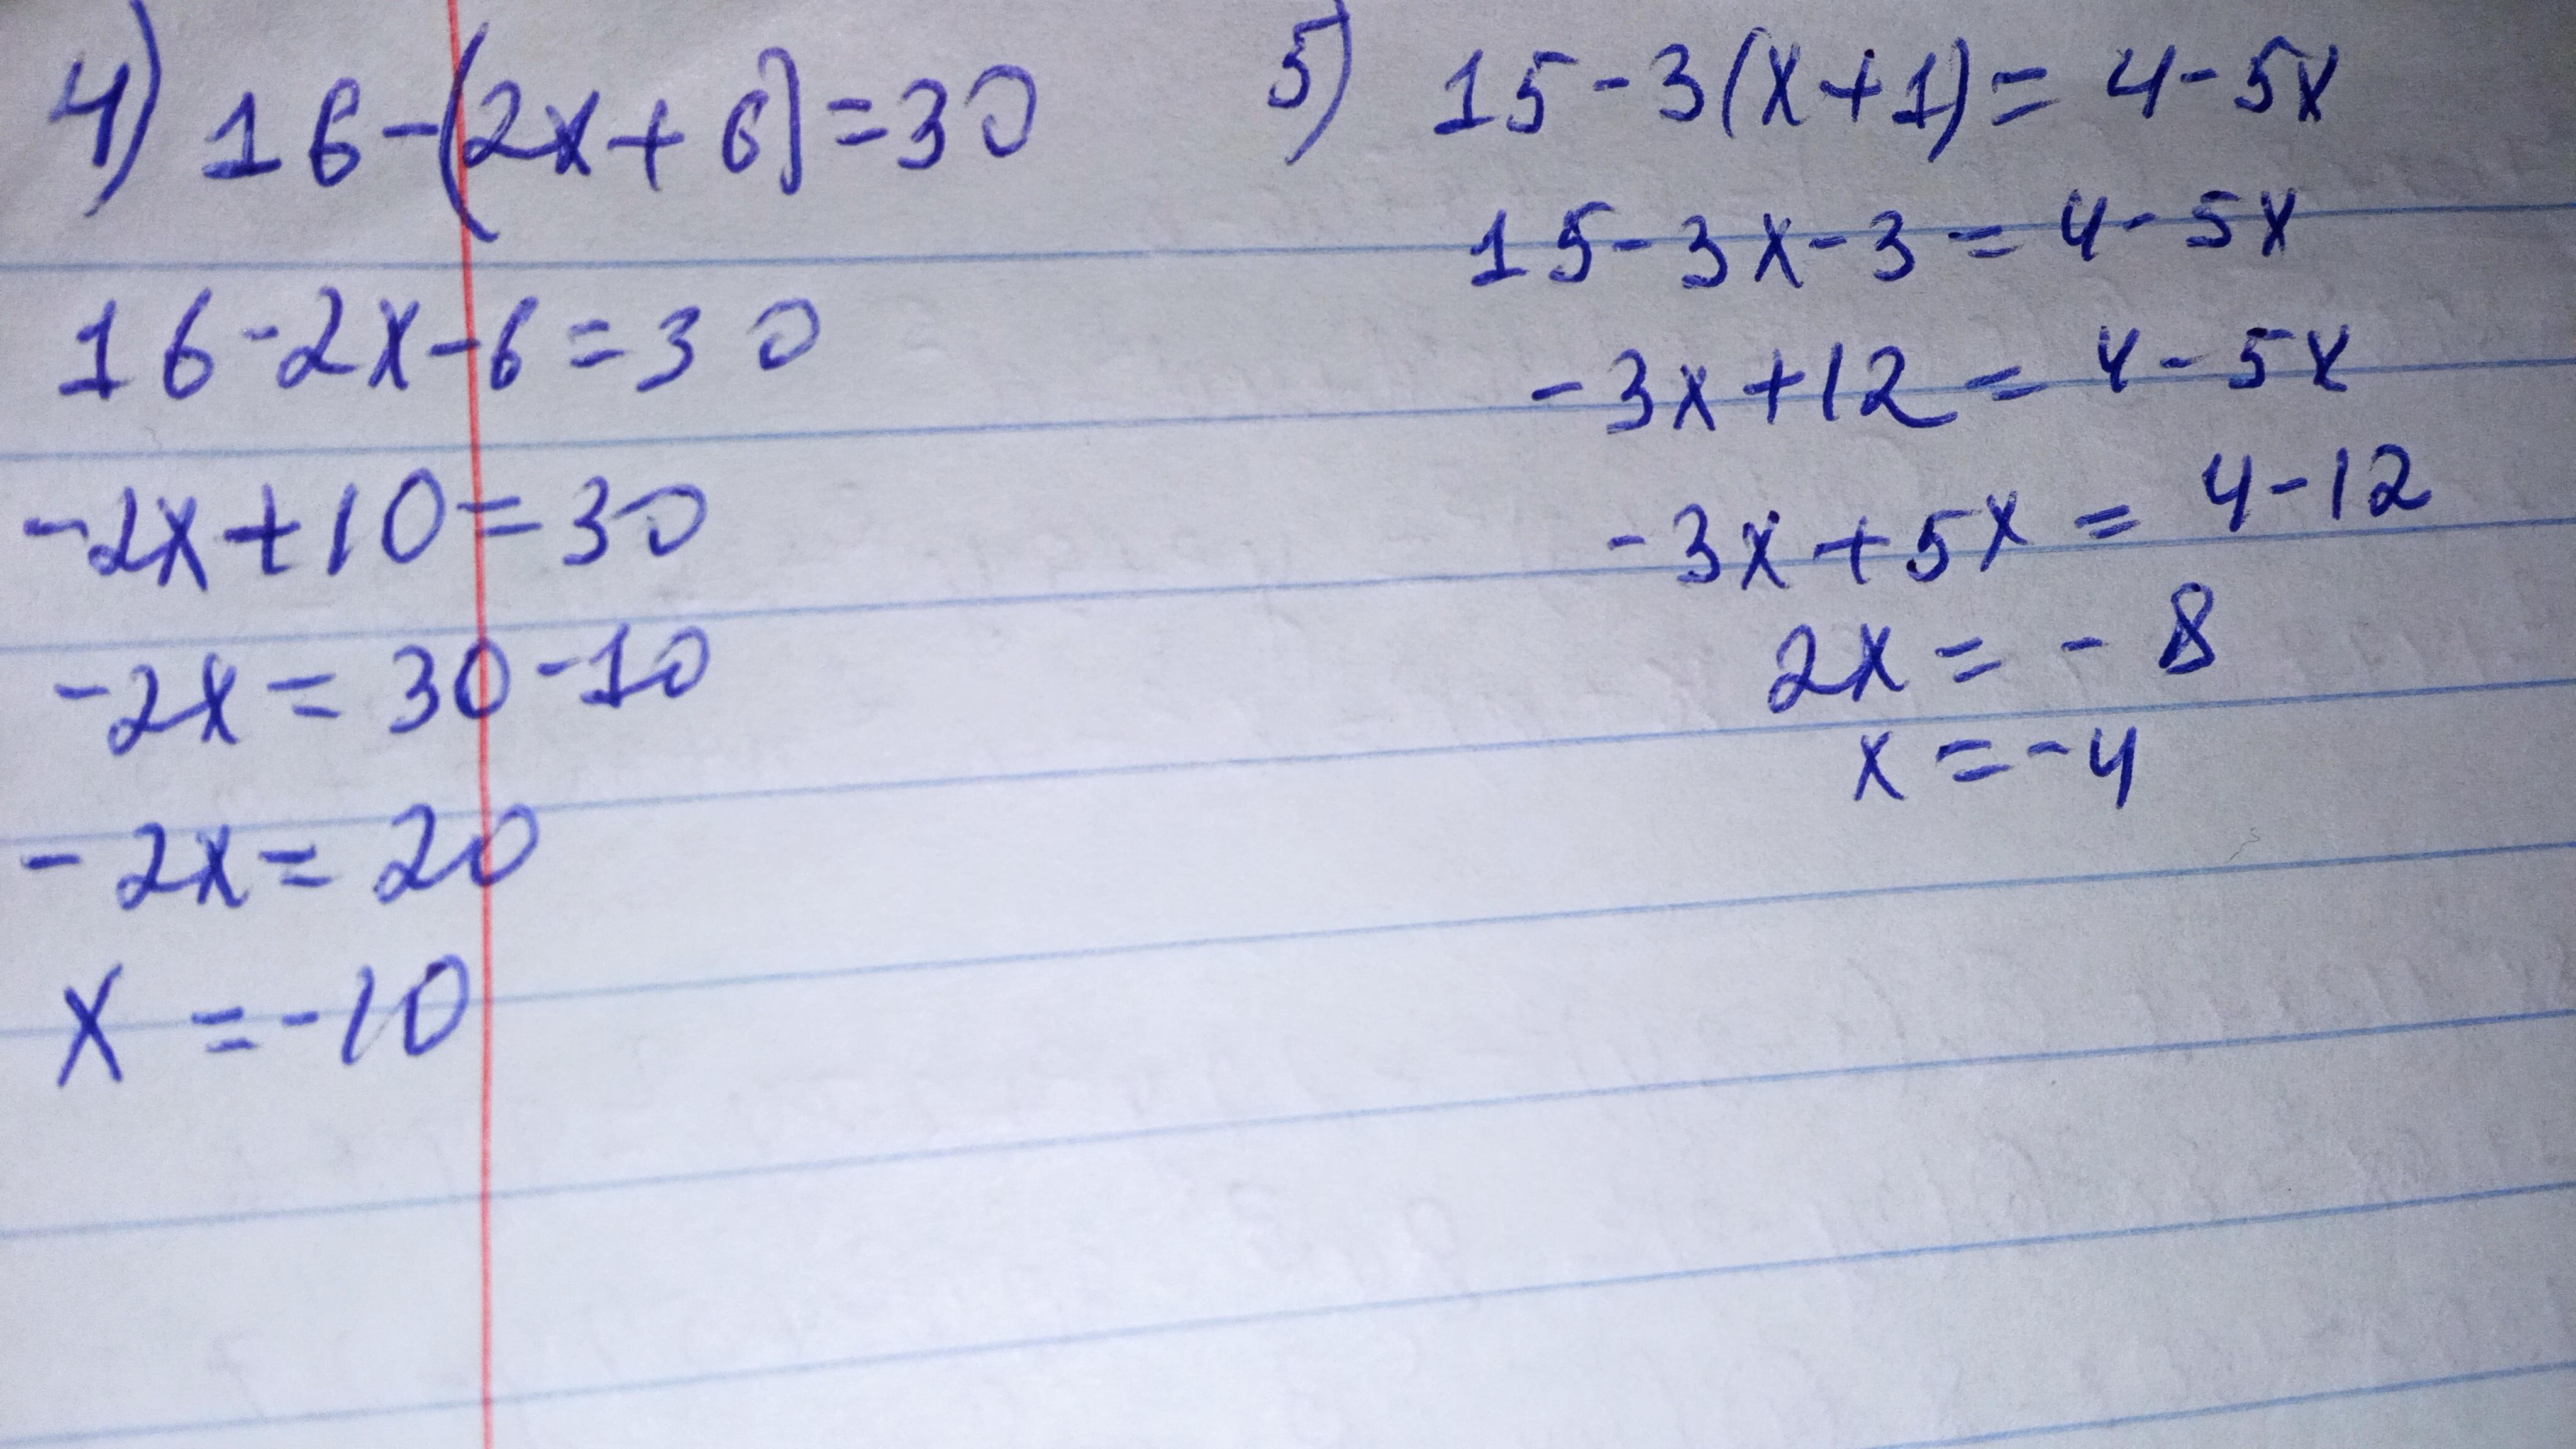 4) 16-(2x+6)=30
16-2x-6=30
-2x+10=30
-2x=30-10
-2x=20
x=-10
5) 15-3(x+1)=4-5x
15-3x-3=4-5x
-3x+12=4-5x
-3x+5x=4-12
2x=-8
x=-4